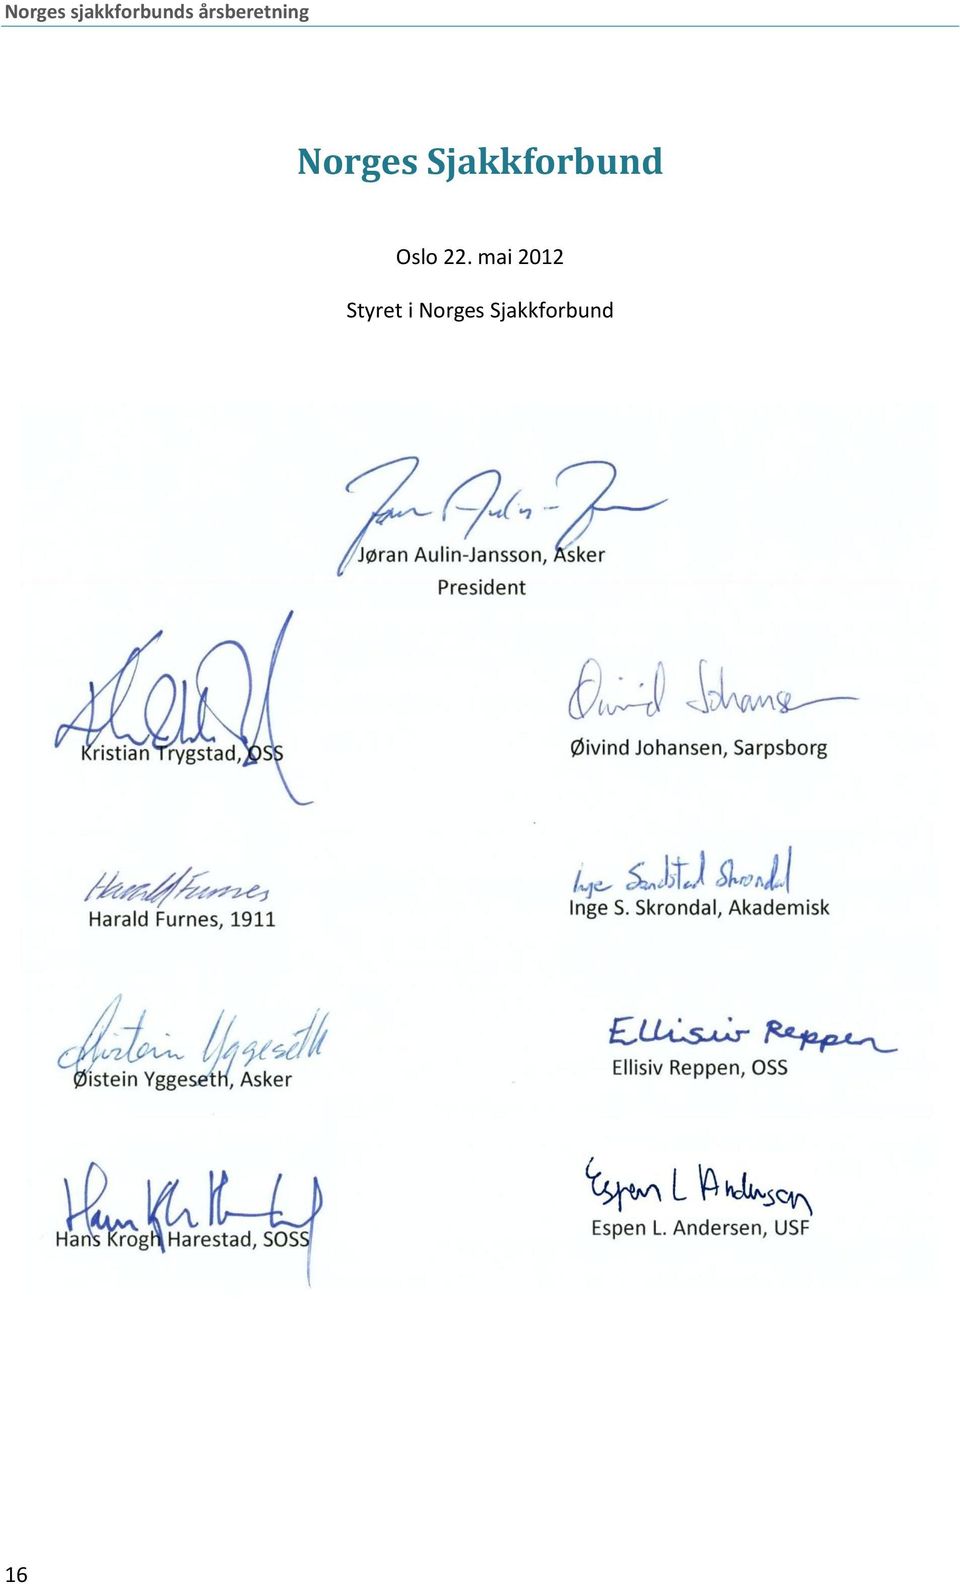 Norges sjakkforbunds årsberetning
Norges Sjakkforbund
Oslo 22. mai 2012
Styret i Norges Sjakkforbund
Jøran Aulin-Jansson, Asker
President
Kristian Trygstad, OSS
Øivind Johansen
Øivind Johansen, Sarpsborg
Harald Furnes
Harald Furnes, 1911
Inge Sandstad Skrondal
Inge S. Skrondal, Akademisk
Øistein Yggeseth
Øistein Yggeseth, Asker
Ellisiv Reppen
Ellisiv Reppen, OSS
Hans Krogh Harestad, SOSS
Espen L Andersen
Espen L. Andersen, USF
16